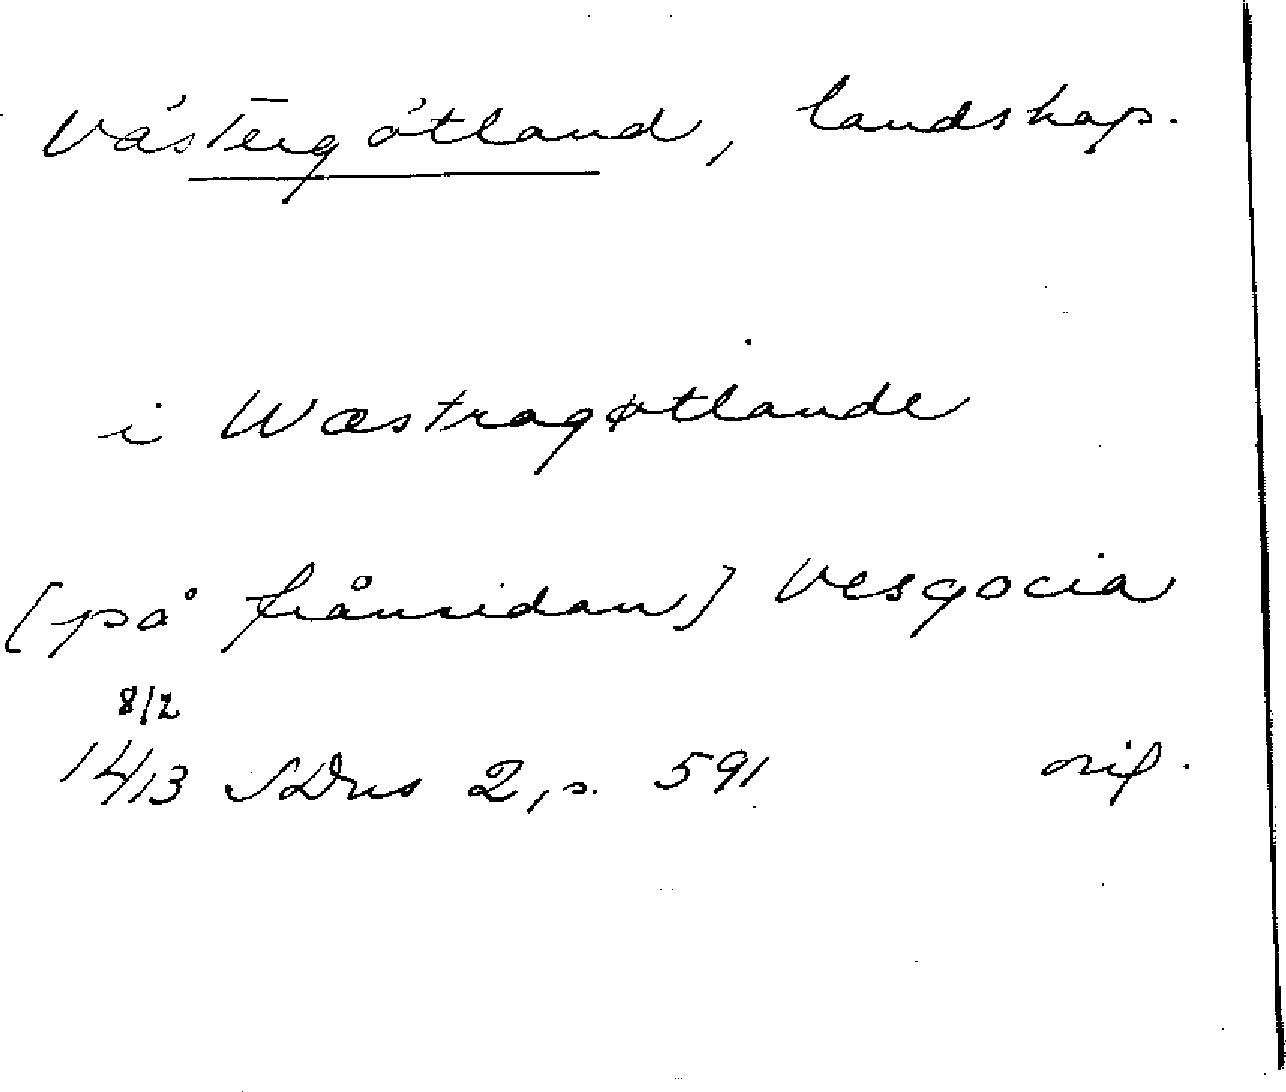 Västergötland, landskap.
i Wæstragøtlande
[på frånsidan] Vesgocia
8/2
1413 SDns 2, s. 591 orig.